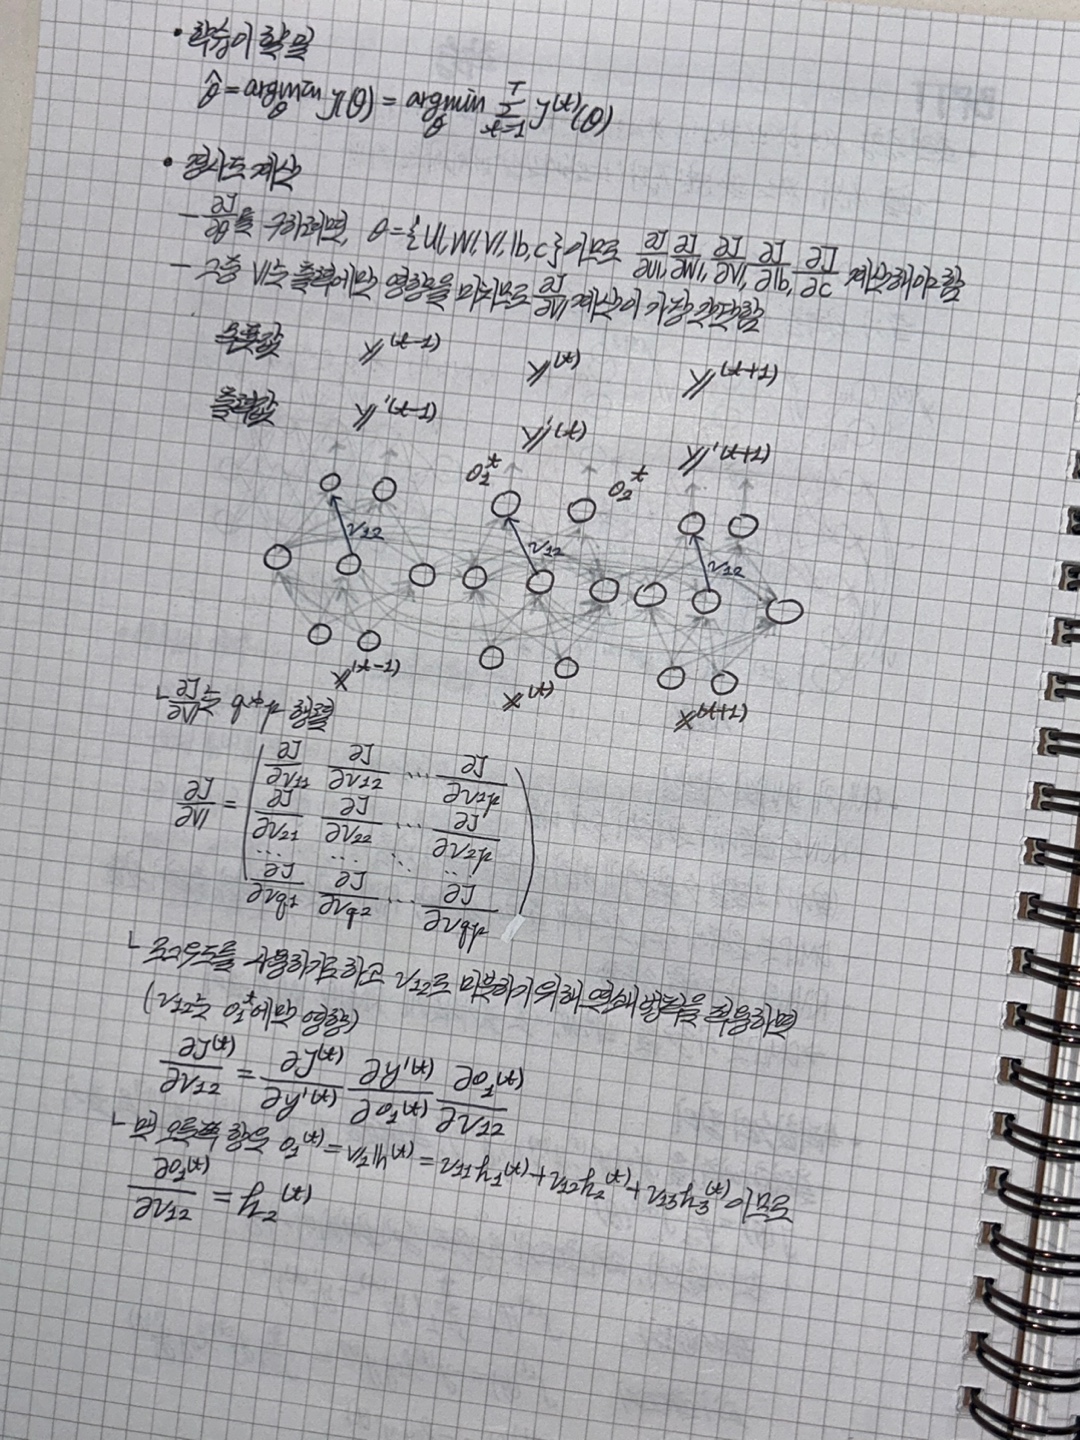 • 학습이 할 일
θ̂ = argmin_θ J(θ) = argmin_θ Σ_{t=1}^{T} J^(t)(θ)
• 경사도 계산
- ∂J/∂θ를 구하려면, θ={U, W, V, b, c}이므로 ∂J/∂U, ∂J/∂W, ∂J/∂V, ∂J/∂b, ∂J/∂c 계산해야 함
- 그중 V는 출력에만 영향을 미치므로 ∂J/∂V 계산이 가장 간단함
목푯값 y^(t-1) y^(t) y^(t+1)
출력값 y'^(t-1) y'^(t) y'^(t+1)
o₁^t o₂^t
v₁₂ v₁₂ v₁₂
x^(t-1) x^(t) x^(t+1)
└ ∂J/∂V는 q*p 행렬
∂J/∂V = ( ∂J/∂v₁₁ ∂J/∂v₁₂ … ∂J/∂v₁p
∂J/∂v₂₁ ∂J/∂v₂₂ … ∂J/∂v₂p
… … ⋱ …
∂J/∂vq₁ ∂J/∂vq₂ … ∂J/∂vqp )
└ 로그우도를 사용하기로 하고 v₁₂로 미분하기 위해 연쇄법칙을 적용하면
(v₁₂는 o₁^t에만 영향)
∂J^(t)/∂v₁₂ = ∂J^(t)/∂y'^(t) ∂y'^(t)/∂o₁^(t) ∂o₁^(t)/∂v₁₂
└ 맨 오른쪽 항은 o₁^(t) = v₁h^(t) = v₁₁h₁^(t) + v₁₂h₂^(t) + v₁₃h₃^(t) 이므로
∂o₁^(t)/∂v₁₂ = h₂^(t)